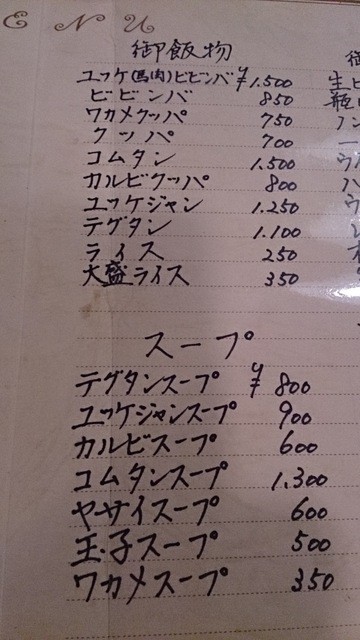 ENU
御飯物
ユッケ(馬肉)ビビンバ ¥1.500
ビビンバ 850
ワカメクッパ 750
クッパ 700
コムタン 1.500
カルビクッパ 800
ユッケジャン 1.250
テグタン 1.100
ライス 250
大盛ライス 350
スープ
テグタンスープ ¥800
ユッケジャンスープ 900
カルビスープ 600
コムタンスープ 1.300
ヤサイスープ 600
玉子スープ 500
ワカメスープ 350